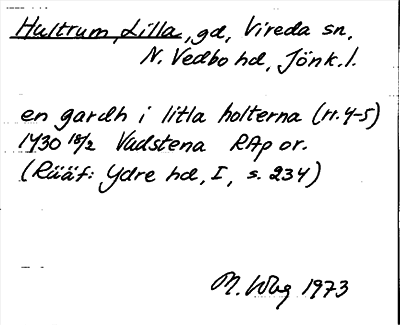 Hultrum Lilla, gd, Vireda sn,
N. Vedbo hd, Jönk.l.
en gardh i litla holterna (r. 4-5)
1430 18/2 Vadstena RAp or.
(Rääf: Ydre hd, I, s. 234)
1973